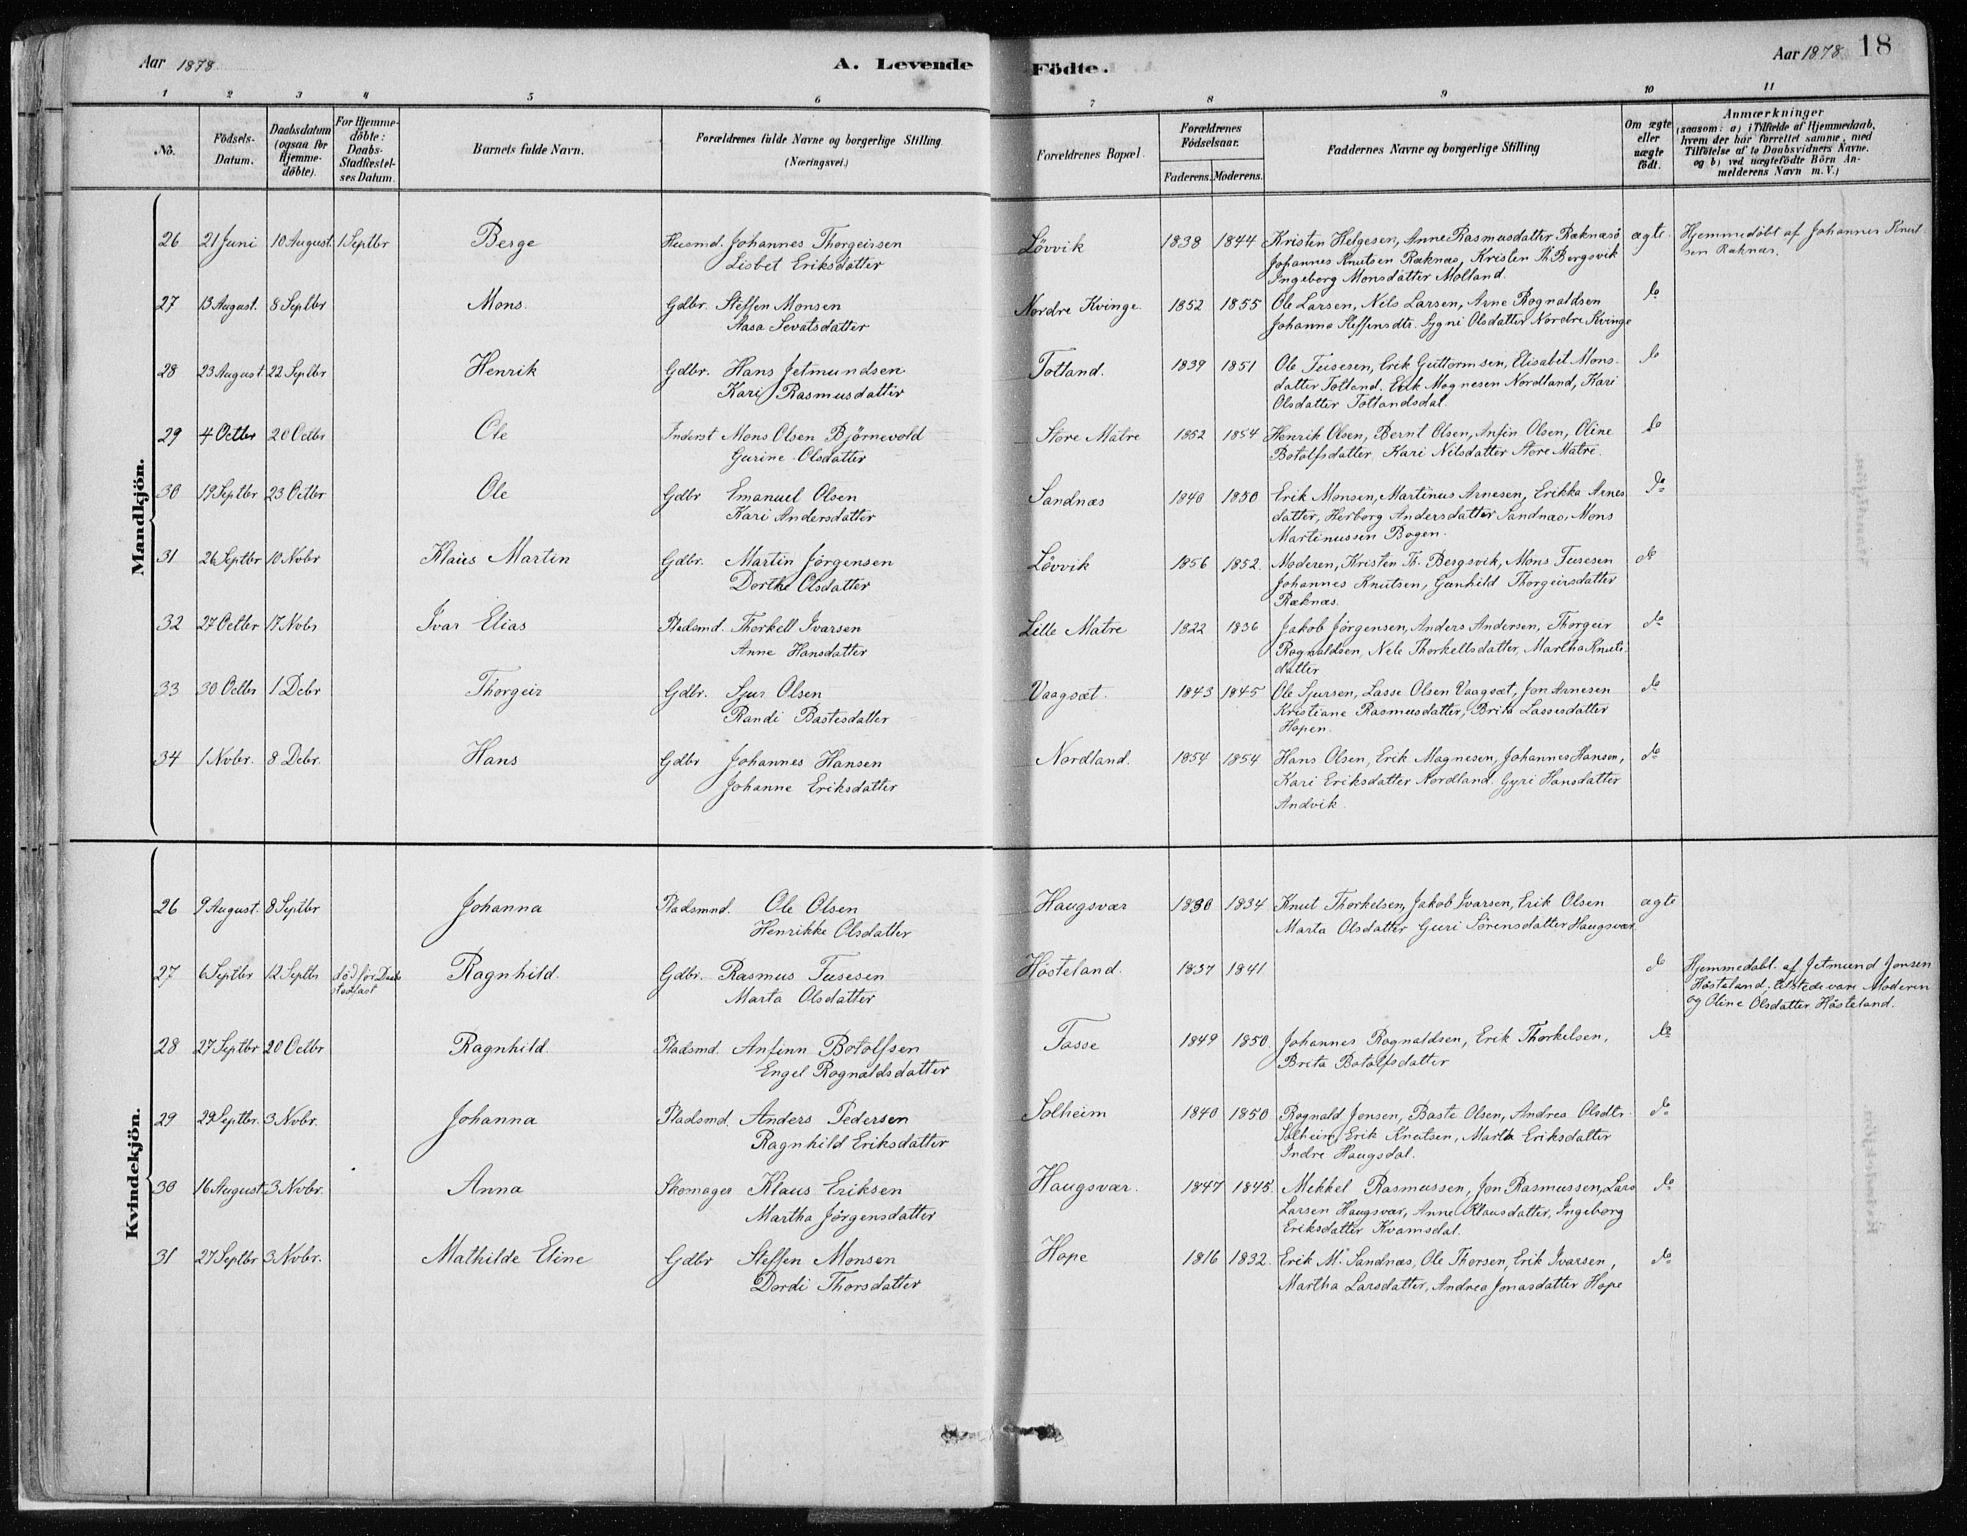 Aar 1878. A. Levende Födte. Aar 1878 18
1 2 3 4 5 6 7 8 9 10 11
Nô. Födsels-Datum. Daabsdatum (ogsaa for Hjemme-döbte). For Hjemme-döbte: Daabs-Stadfæstel-ses Datum. Barnets fulde Navn. Forældrenes fulde Navne og borgerlige Stilling (Næringsvei.) Forældrenes Bopæl. Forældrenes Födselsaar. Faderens. Moderens. Faddernes Navne og borgerlige Stilling Om ægte eller uægte födt. Anmærkninger (saasom: a) i Tilfælde af Hjemmedaab, hvem der har forrettet samme, med Tilföielse af to Daabsvidners Navne, og b) ved uægtefödte Börn An-melderens Navn m. V.)
Mandkjön.
26 21 Juni 10 August. 1 Septbr Berge Husmd. Johannes Thorgeirsen Løvvik 1838 1844 Kristen Helgesen, Anne Rasmusdatter Ræknesö ægte. Hjemmedöbt af Johannes Knut
Lisbet Eriksdatter Johannes Knutsen Ræknæs, Kristen Th. Bergsvik sen Ræknæs.
Ingeborg Monsdatter Molland.
27 13 August. 8 Septbr Mons. Gdbr. Steffen Monsen Nordre Kvinge. 1852 1855 Ole Larsen, Nels Larsen, Arne Rognaldsen do
Aasa Sevatsdatter Johanna Steffensdtr. Sygni Olsdatter Nordre Kvinge
28 23 August. 22 Septbr Henrik Gdbr. Hans Jetmundsen Totland. 1839 1851 Ole Tusesen, Erik Guttormsen, Elisabet Mons- do
Kari Rasmusdatter datter Totland. Erik Magnesen Nordland, Kari
Olsdatter Totlandsdal.
29 4 Octbr 20 Octbr Ole Inderst Mons Olsen Bjørnevold Store Matre 1852 1854 Henrik Olsen, Bernt Olsen, Anfin Olsen, Oline do
Gurine Olsdatter Botolfsdatter, Kari Nilsdatter Store Matre.
30 19 Septbr 23 Octbr Ole Gdbr Emanuel Olsen Sandnæs 1840 1850 Erik Monsen, Martinus Arnesen, Erikka Arnes do
Kari Andersdatter datter, Herborg Andersdatter Sandnæs, Mons
Martinussen Bogen.
31 26 Septbr 10 Novbr Klaus Martin Gdbr. Martin Jørgensen Løvvik 1856 1852. Moderen, Kristen Th. Bergsvik, Mons Tusesen do
Dorthe Olsdatter Johannes Knutsen, Gunhild Thorgeirsdatter
Ræknæs.
32 27 Octbr 17 Novbr Ivar Elias Pladsmd. Thorkell Ivarsen Lille Matre 1822 1836 Jakob Jørgensen, Anders Andersen, Thorgeir do
Anne Hansdatter Rognaldsen, Nele Thorkellsdatter, Martha Knuts-
datter
33 30 Octbr 1 Debr Thorgeir Gdbr. Sjur Olsen Vaagsæt. 1843 1845 Ole Sjursen, Lasse Olsen Vaagsæt, Jon Arnesen do
Randi Bastesdatter Kristiane Rasmusdatter, Brita Lassesdatter
Hopen.
34 1 Novbr. 8 Debr. Hans Gdbr Johannes Hansen Nordland. 1854 1854 Hans Olsen, Erik Magnesen, Johannes Hansen, do
Johanne Eriksdatter Kari Eriksdatter Nordland. Gyri Hansdatter
Andvik.
Kvindekjön.
26 9 August. 8 Septbr Johanna Pladsmnd. Ole Olsen Haugsvær 1830 1834 Knut Thorkelsen, Jakob Ivarsen, Erik Olsen ægte
Henrikke Olsdatter Marta Olsdatter Guri Sörensdatter Haugsvær.
27 6 Septbr 12 Septbr død før Daabs Ragnhild. Gdbr. Rasmus Tusesen Hösteland. 1837 1841 do Hjemmedøbt af Jetmund Jonsen
stadfæst Marta Olsdatter Hösteland; tilstede vare Moderen
og Oline Olsdatter Hösteland.
28 27 Septbr 20 Octbr Ragnhild. Pladsmd. Anfinn Botolfsen Tosse 1849 1850. Johannes Rognaldsen, Erik Thorkelsen, do
Engel Rognaldsdatter Brita Botolfsdatter
29 29 Septbr. 3 Novbr. Johanna Pladsmd. Anders Pedersen Solheim 1840 1850 Rognald Jonsen, Baste Olsen, Andrea Olsdtr. do
Ragnhild Eriksdatter Solheim, Erik Knutsen, Marth Eriksdatter
Indre Haugsdal.
30 16 August 3 Novbr. Anna Skomager Klaus Eriksen Haugsvær. 1847 1845. Mekkel Rasmussen, Jon Rasmussen, Lars do
Martha Jørgensdatter Larsen Haugsvær, Anne Klausdatter, Ingeborg
Eriksdatter Kvamsdal.
31 27 Septbr 3 Novbr. Mathilde Eline Gdbr Steffen Monsen Hope 1816 1832. Erik M. Sandnæs, Ole Thorsen, Erik Ivarsen, do
Dordi Thorsdatter Martha Larsdatter, Andrea Jonasdatter Hope